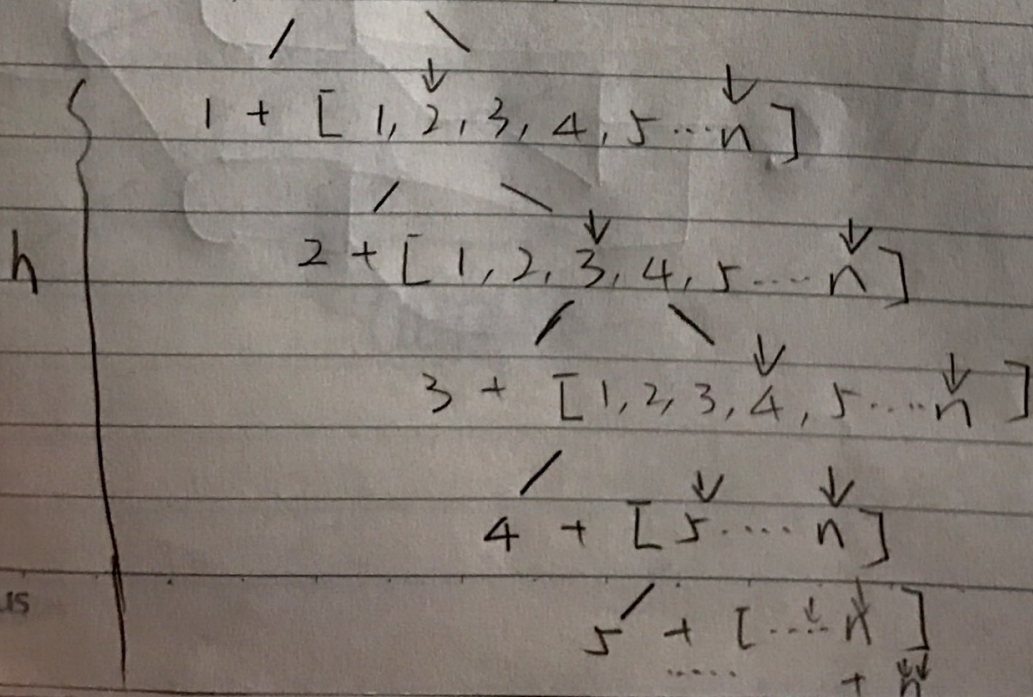 1 + [ 1, 2, 3, 4, 5 ... n ]
h
2 + [ 1, 2, 3, 4, 5 .... n ]
3 + [ 1, 2, 3, 4, 5 ..... n ]
4 + [ 5 ..... n ]
us
5 + [ ..... n ]
..... + n